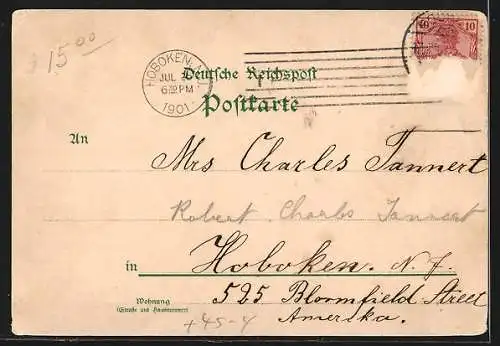 $1500
10 10
HOBOKEN, N.J.
JUL
6 PM
1901
Deutsche Reichspost
Postkarte
An
Mrs Charles Tannert
Robert Charles Tannert
in Hoboken. N. J.
525 Bloomfield Street
Amerika.
Wohnung
(Straße und Hausnummer)
+45-4